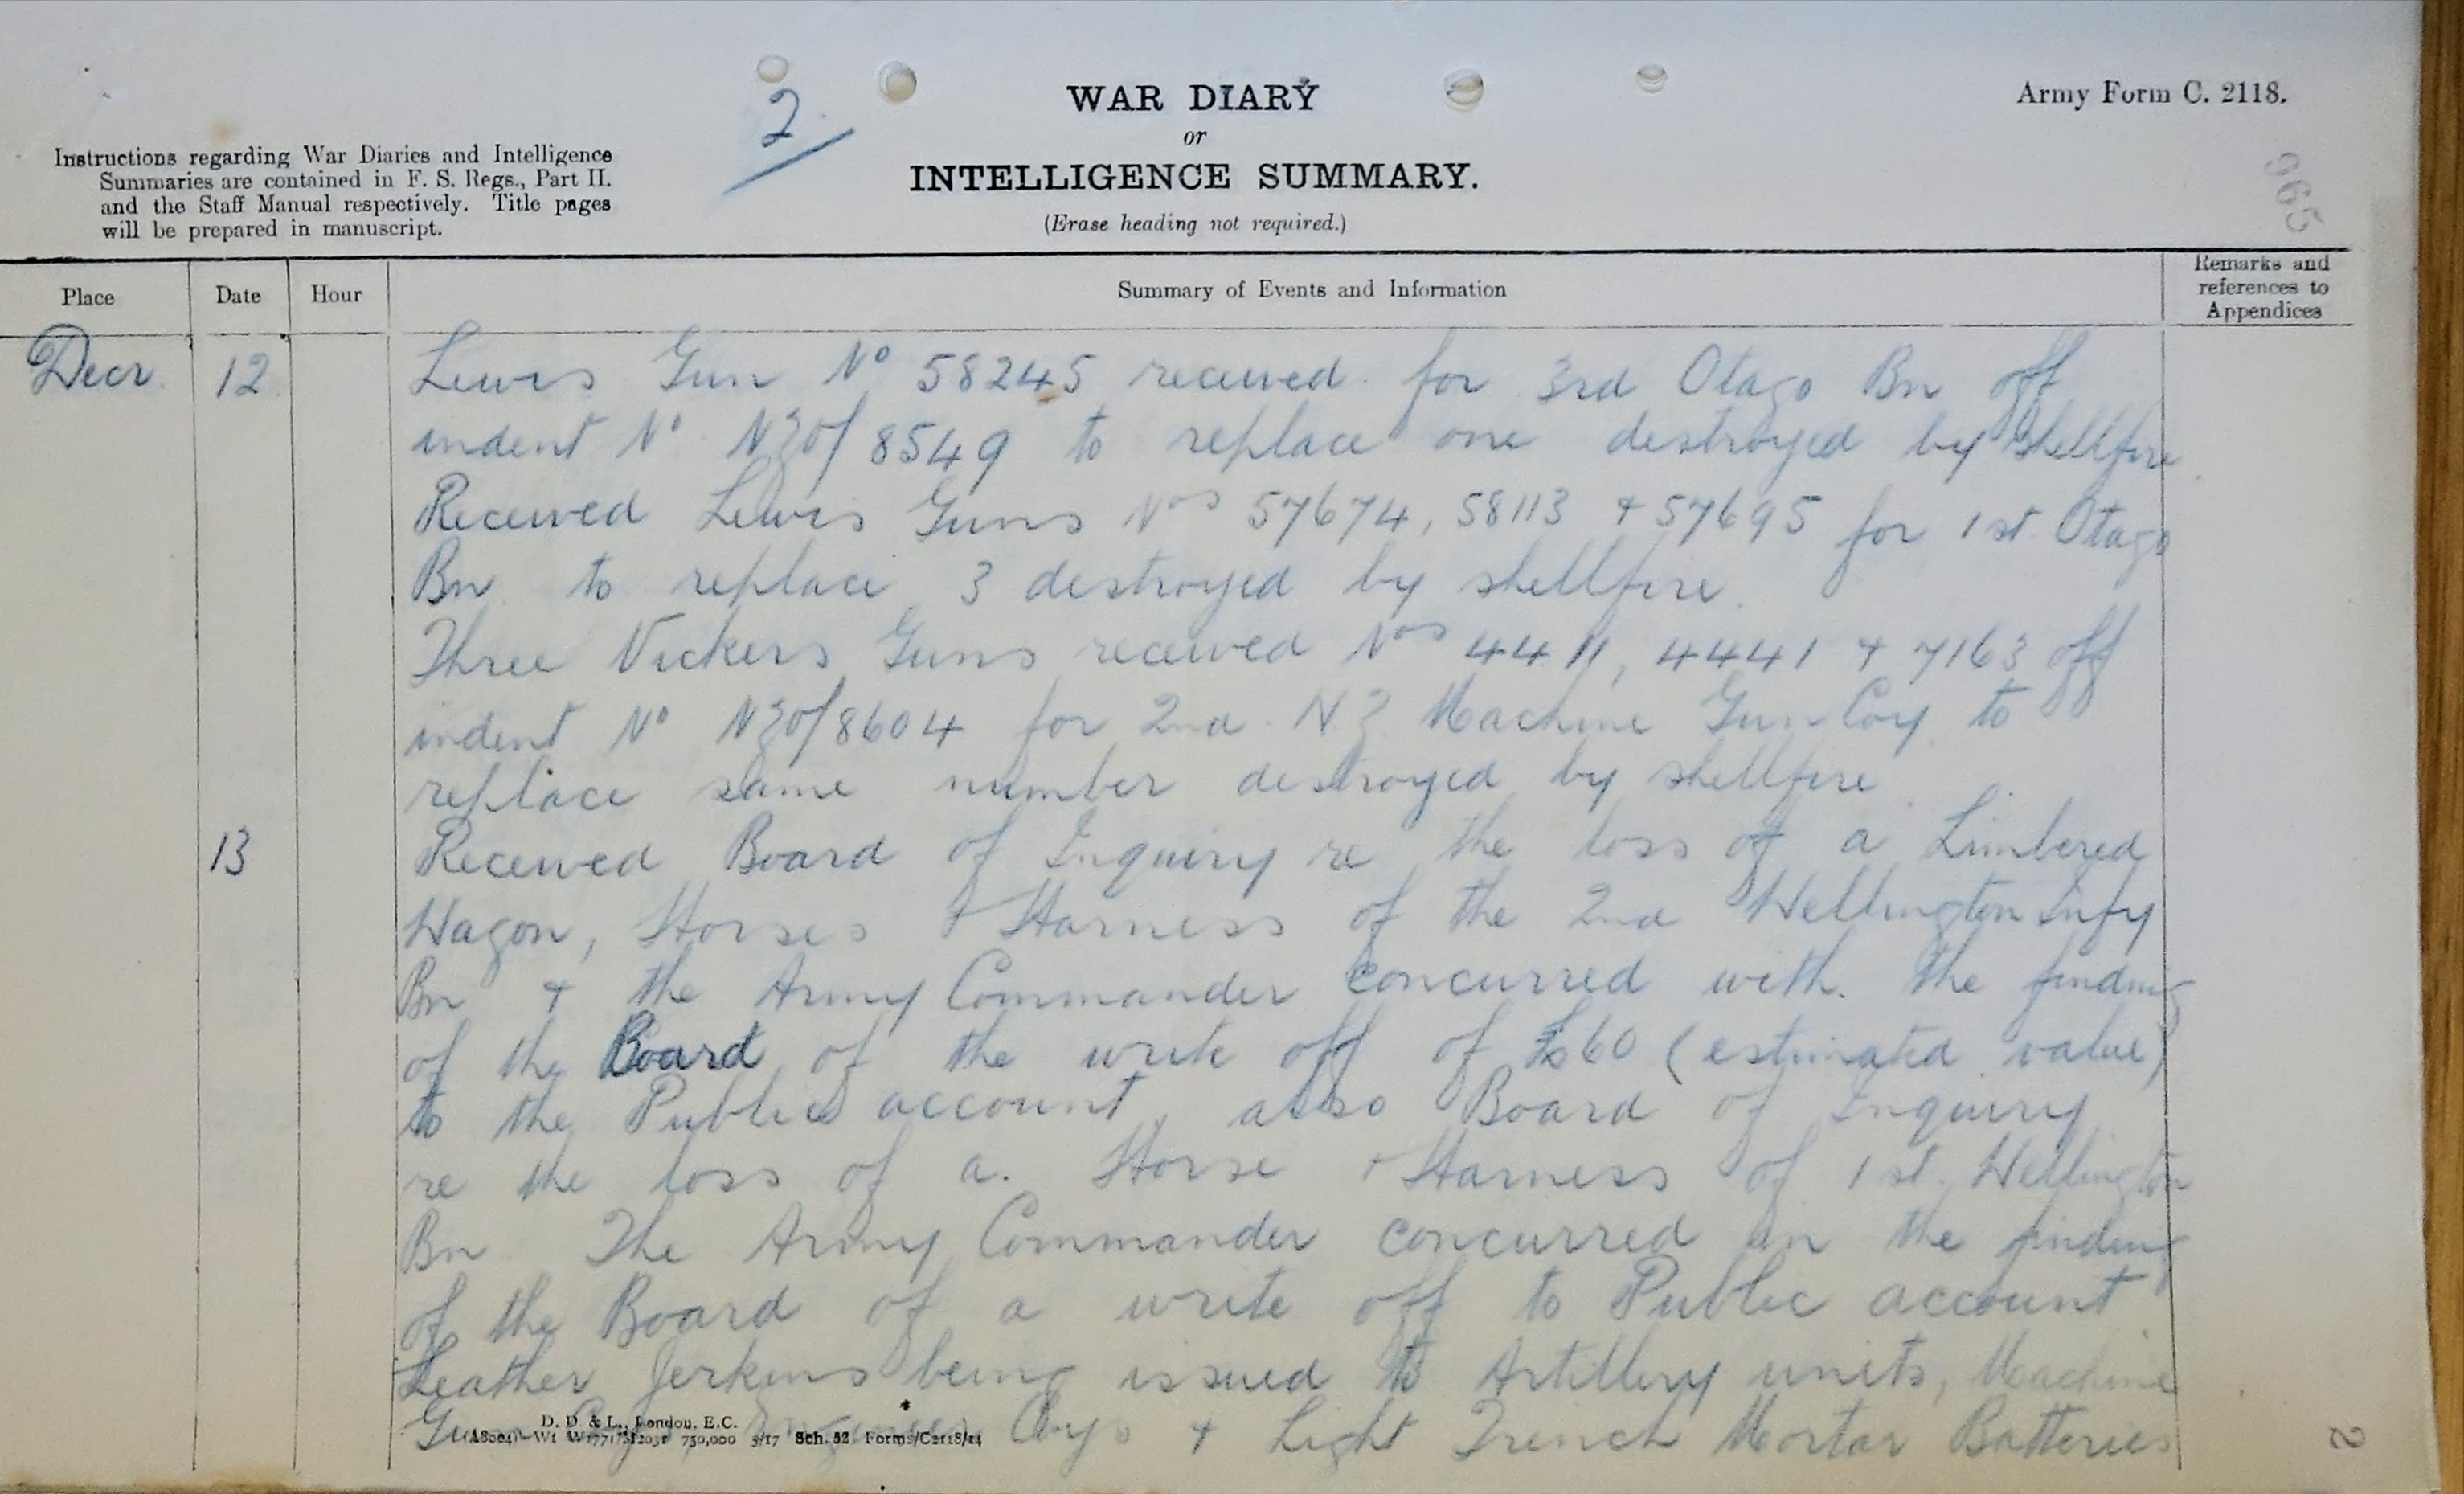 2
WAR DIARY
or
INTELLIGENCE SUMMARY.
(Erase heading not required.)
Army Form C. 2118.
965
Instructions regarding War Diaries and Intelligence
Summaries are contained in F. S. Regs., Part II.
and the Staff Manual respectively. Title pages
will be prepared in manuscript.
Place
Date
Hour
Summary of Events and Information
Remarks and
references to
Appendices
Decr. 12 Lewis Gun No 58245 received for 3rd Otago Bn off
indent No NZof 8549 to replace one destroyed by shellfire.
Received Lewis Guns Nos 57674, 58113 + 57695 for 1st Otago
Bn to replace 3 destroyed by shellfire.
Three Vickers Guns received Nos 4411, 4441 + 7163 off
indent No NZof 8604 for 2nd NZ Machine Gun Coy to
replace same number destroyed by shellfire.
13 Received Board of Inquiry re the loss of a Limbered
Wagon, Horses + Harness of the 2nd Wellington Infy
Bn + the Army Commander concurred with the finding
of the Board of the write off of £60 (estimated value)
to the Public account, also Board of Inquiry
re the loss of a Horse + Harness of 1st Wellington
Bn The Army Commander concurred in the finding
of the Board of a write off to Public account
Leather Jerkins being issued to Artillery units, Machine
Gun Coys + Light Trench Mortar Batteries
D. D. & L., London, E.C.
750,000 3/17 Sch. 52 Forms/C2118/14
2